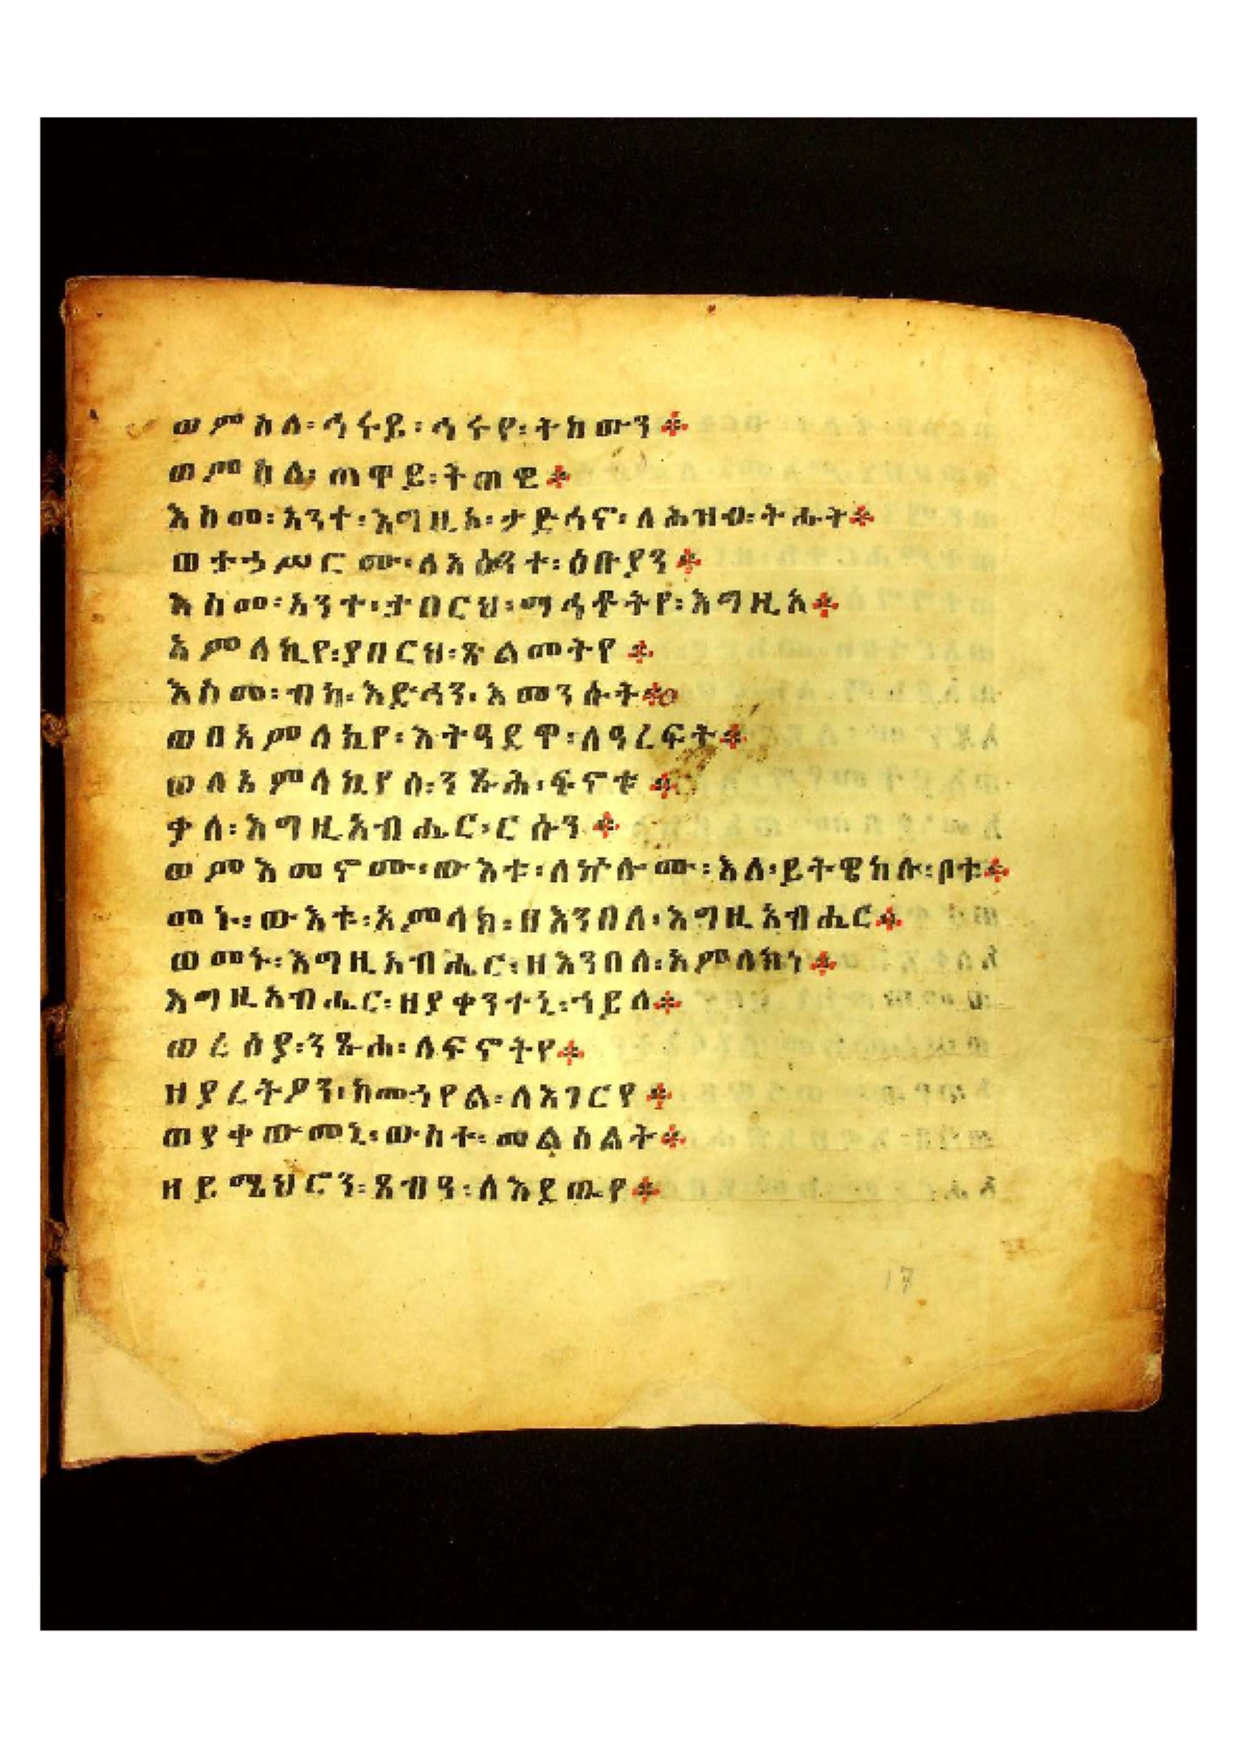 ወምስለ፡ኅሩይ፡ኅሩየ፡ትከውን፨
ወምስለ፡ጠዋይ፡ትጠዊ፨
እስመ፡አንተ፡እግዚኦ፡ታድኅኖ፡ለሕዝብ፡ትሑት፨
ወታኀሥርሙ፡ለአዕይንተ፡ዕቡያን፨
እስመ፡አንተ፡ታበርህ፡ማኅቶትየ፡እግዚኦ፨
አምላኪየ፡ያበርህ፡ጽልመትየ፨
እስመ፡ብከ፡እድኅን፡እመንሱት፨
ወበአምላኪየ፡እትዓደዋ፡ለዓረፍት፨
ወለአምላኪየሰ፡ንጹሕ፡ፍኖቱ፨
ቃለ፡እግዚአብሔር፡ርሱን፨
ወምእመኖሙ፡ውእቱ፡ለኵሎሙ፡እለ፡ይትዌከሉ፡ቦቱ፨
መኑ፡ውእቱ፡አምላክ፡ዘእንበለ፡እግዚአብሔር፨
ወመኑ፡እግዚአብሔር፡ዘእንበለ፡አምላክነ፨
እግዚአብሔር፡ዘያቀንተኒ፡ኀይለ፨
ወረሰያ፡ንጹሐ፡ለፍኖትየ፨
ዘያረትዖን፡ከመኀየል፡ለእገርየ፨
ጠያቀውመኒ፡ውስተ፡መልዕልት፨
ዘይሜህሮን፡ጸብዓ፡ለእደዊየ፨
17